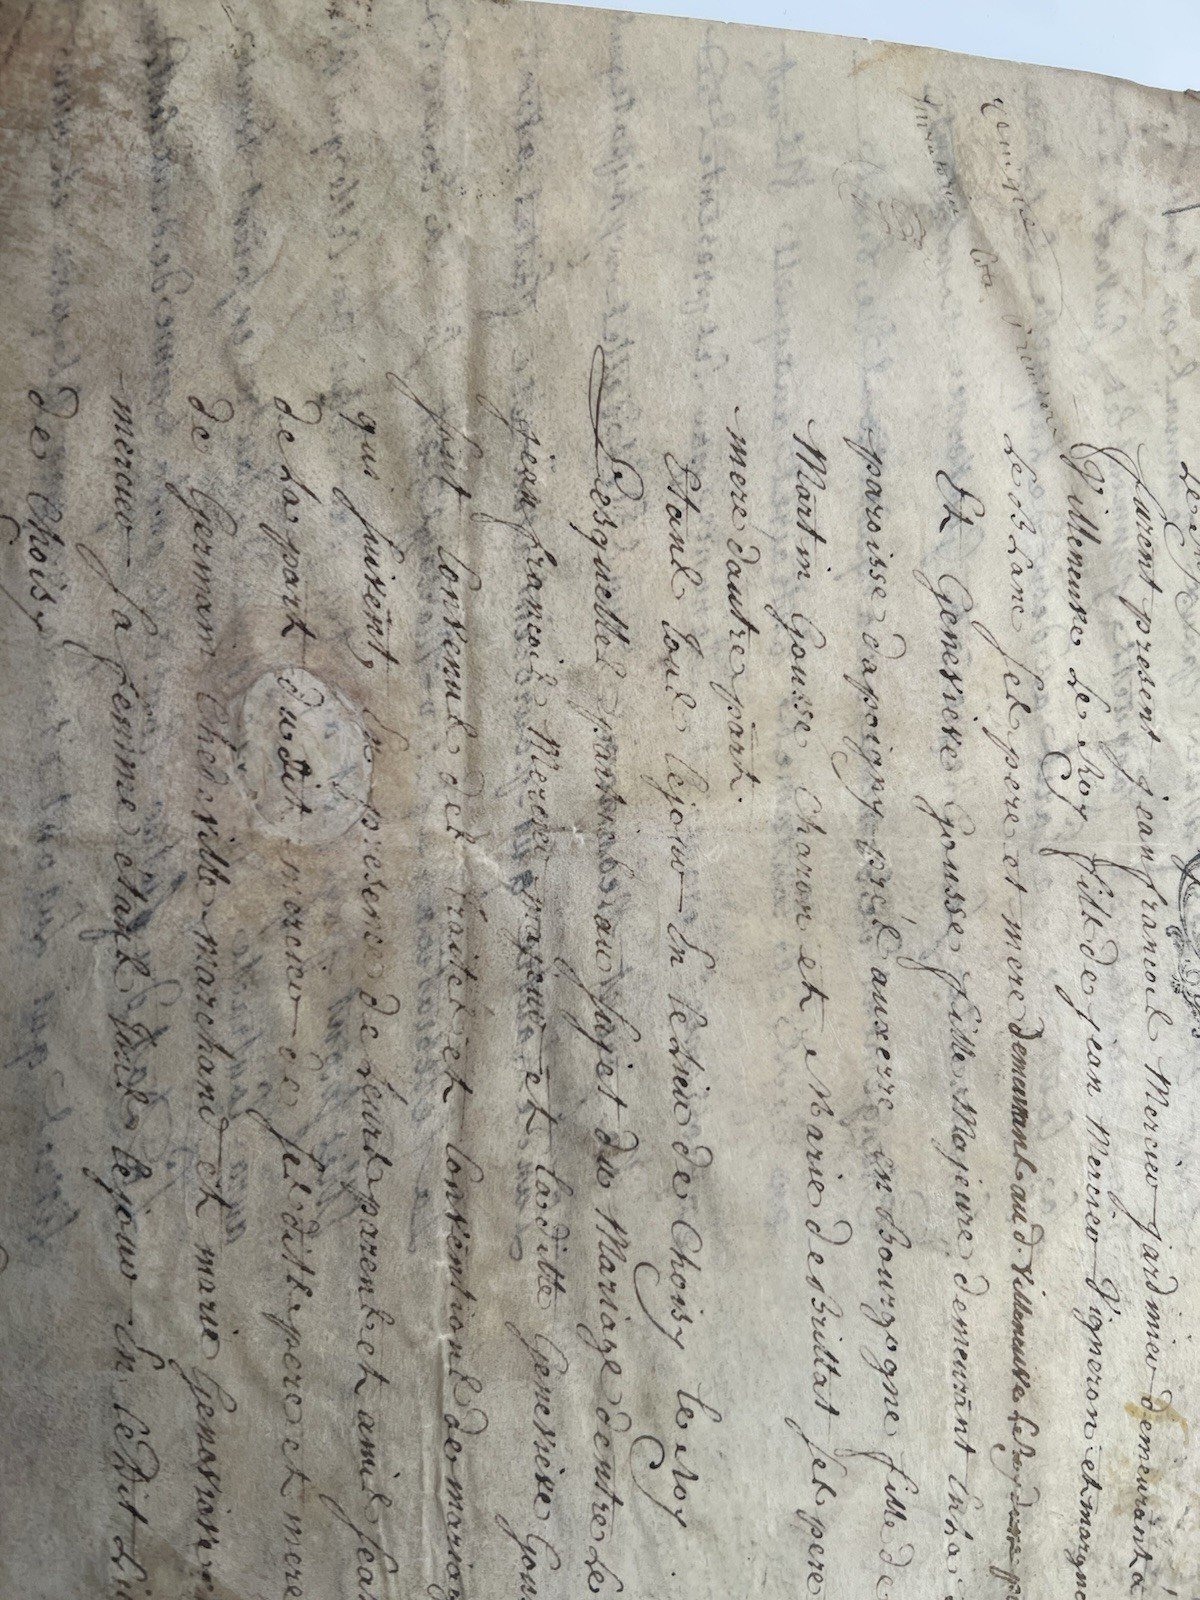 furent present jean francois Mercier jardinier demeurant a
Villeneuve Le Roy fils de jean Mercier Vigneron et margue
Le Blanc ses pere et mere demeurant aud. Villeneuve Le Roy
Et Genevieve Gousse fille Majeure demeurant en La
paroisse dapoigny prés auxerre en Bourgogne fille de
Martin Gousse Charon et Marie de Brittat ses pere
mere dautre part.
Etant tous cejour En ce Lieu de Choisy le Roy
Lesquelles parties au sujet du Mariage dentre Le
jean francois Mercier et ladite Genevieve Gous
sont Convenus des traités et Conventions de mariag
qui suivent, En presence de Leurs parents et amis sca
de La part dudit mercier de ses dits pere et mere
de Germain Chedeville marchand et marie Genevieve
mercier sa femme etants tous cejour en ledit Li
de Choisy